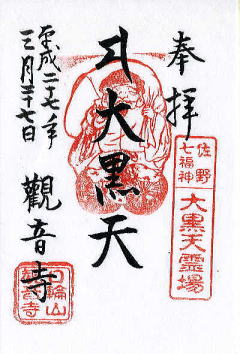 奉拝
佐野
七福神
大黒天霊場
大黒天
平成二十七年
三月二十七日
觀音寺
日輪山
觀音寺